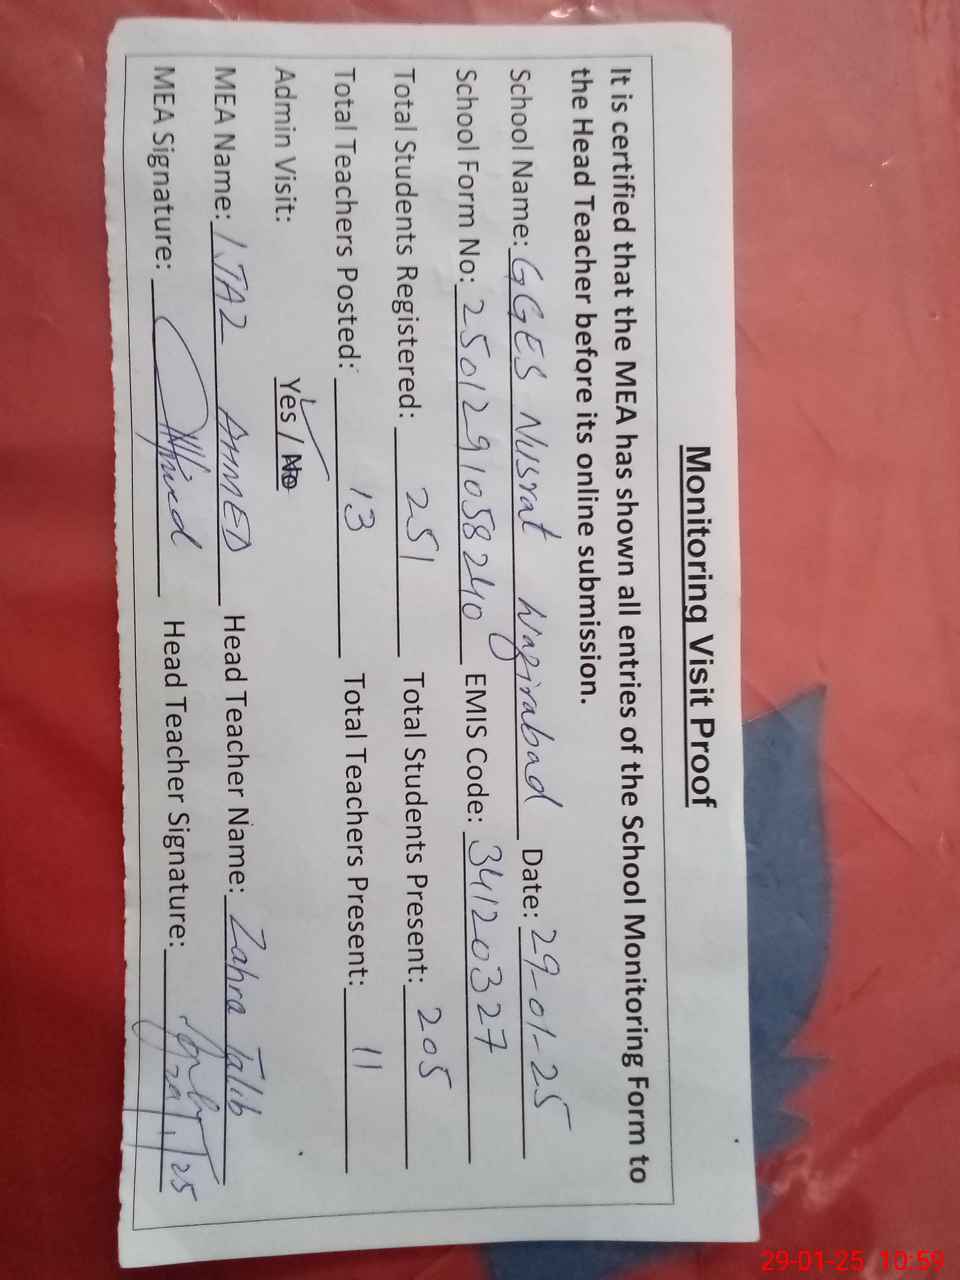 Monitoring Visit Proof
It is certified that the MEA has shown all entries of the School Monitoring Form to
the Head Teacher before its online submission.
School Name: GGES Nusrat Wazirabad Date: 29-01-25
School Form No: 2501291058240 EMIS Code: 34120327
Total Students Registered: 251 Total Students Present: 205
Total Teachers Posted: 13 Total Teachers Present: 11
Admin Visit: Yes / No
MEA Name: IJAZ AHMED Head Teacher Name: Zahra Talib
MEA Signature: Head Teacher Signature:
29-01-25 10:59